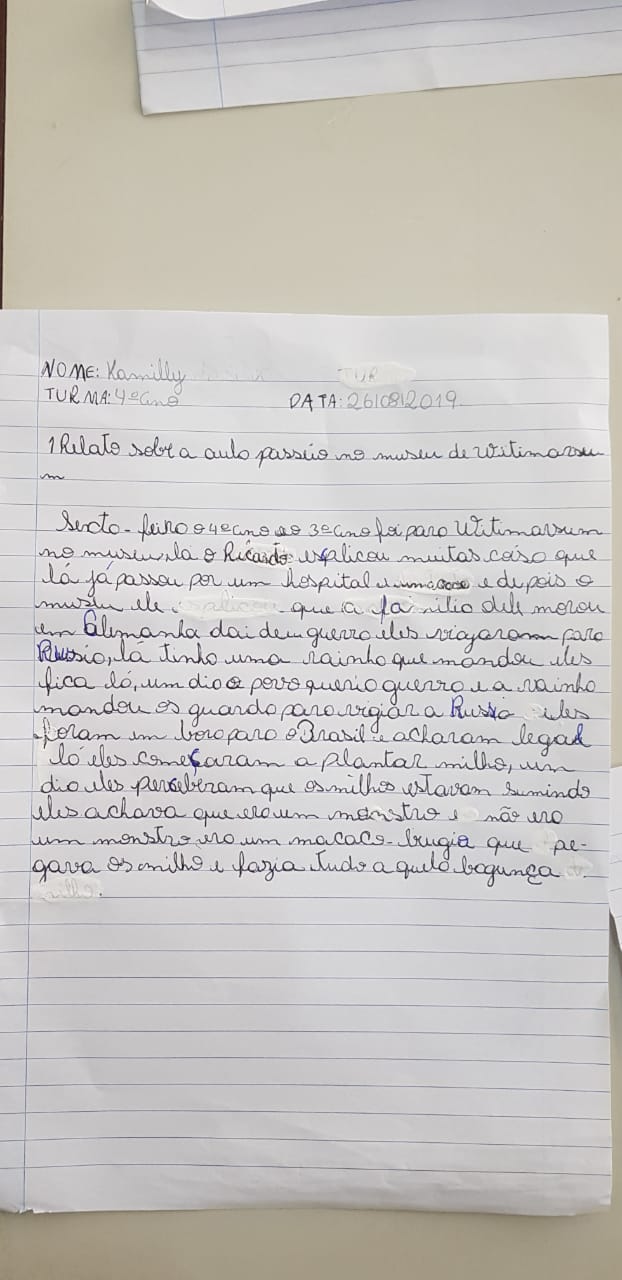 NOME: Kamilly
TUR
TURMA: 4º ano
DATA: 26/08/2019
1 Relato sobre a aula passeio no museu de Witimarsu
m
Sexta-feira o 4º ano ao 3º ano foi para Witimarsum
no museu, la o Ricardo explicou muitas coisa que
lá já passou por um hospital e uma casa e depois o
museu ele explicou que a familia dele morou
em Alemanha dai deu guerra eles viajaram para
Russia, lá tinha uma rainha que mandou eles
fica lá, um dia o povo queria guerra e a rainha
mandou os guarda para vigiar a Russia eles
foram em barco para o Brasil e acharam legal
lá eles começaram a plantar milho, um
dia eles perceberam que os milhos estavam sumindo
eles achava que era um monstro e não era
um monstro era um macaco-brugia que pe-
gava os milho e fazia tudo a quela bagunça
milho.